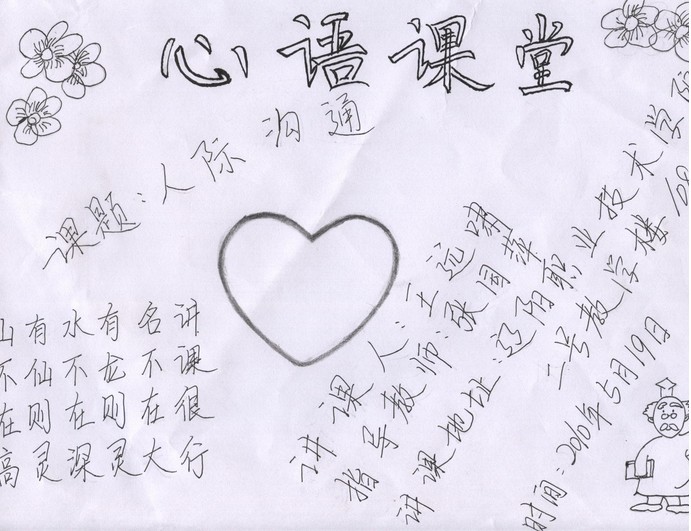 心语课堂
课题：人际沟通
山有水有名讲
不仙不龙不课
在则在则在很
高灵深灵大行
讲课人：王远啸
指导教师：张国萍
讲课地址：辽阳职业技术学院
二号教学楼100
时间：2010年5月19日